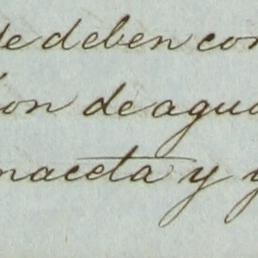 se deben con
ion de agua
maceta y y